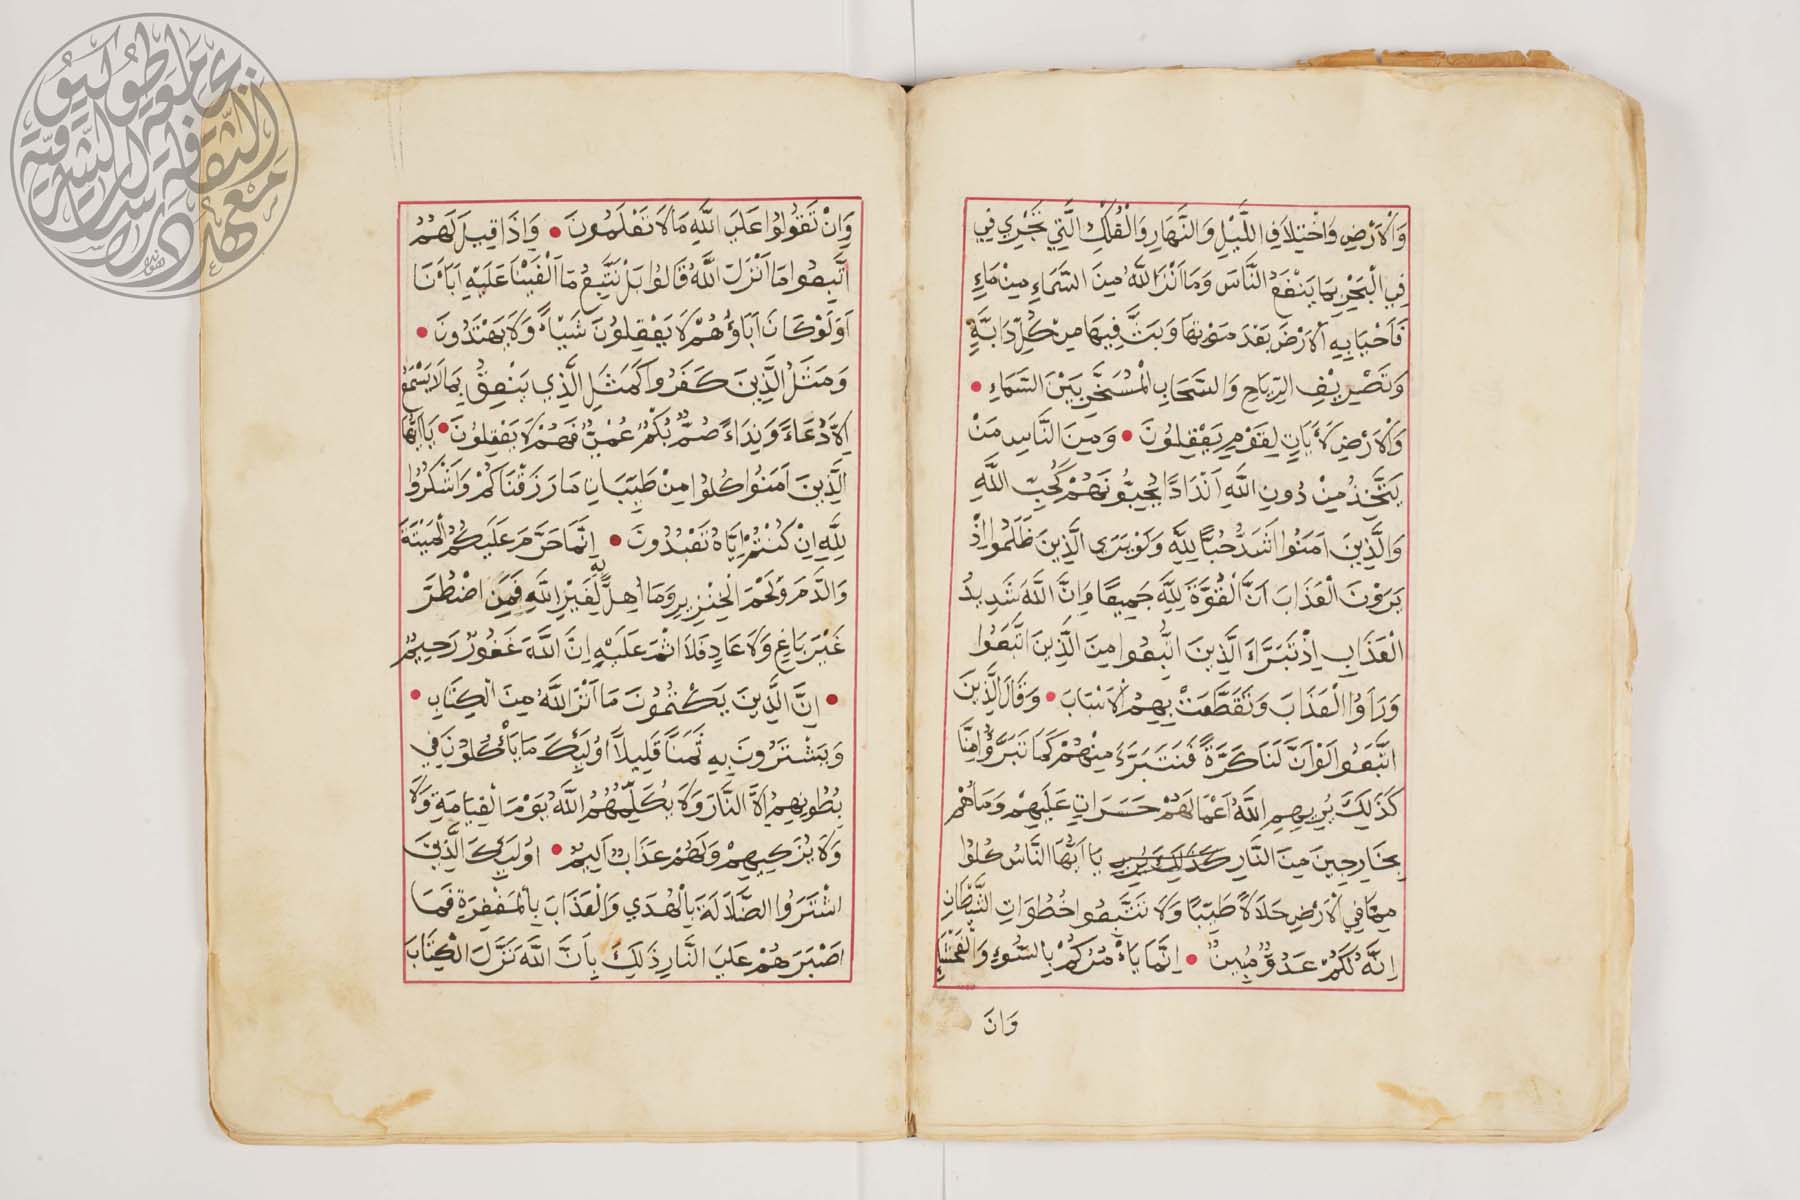 وَالْاَرْضِ وَاخْتِلَافِ اللَّيْلِ وَالنَّهَارِ وَالْفُلْكِ الَّتِي تَجْرِي فِي
فِي الْبَحْرِ بِمَا يَنْفَعُ النَّاسَ وَمَا اَنْزَلَ اللّٰهُ مِنَ السَّمَاءِ مِنْ مَاءٍ
فَاَحْيَا بِهِ الْاَرْضَ بَعْدَ مَوْتِهَا وَبَثَّ فِيهَا مِنْ كُلِّ دَابَّةٍ
وَتَصْرِيْفِ الرِّيَاحِ وَالسَّحَابِ الْمُسَخَّرِ بَيْنَ السَّمَاءِ
وَالْاَرْضِ لَاٰيَاتٍ لِقَوْمٍ يَعْقِلُونَ وَمِنَ النَّاسِ مَنْ
يَتَّخِذُ مِنْ دُونِ اللّٰهِ اَنْدَادًا يُحِبُّونَهُمْ كَحُبِّ اللّٰهِ
وَالَّذِينَ اٰمَنُوا اَشَدُّ حُبًّا لِلّٰهِ وَلَوْ يَرَى الَّذِينَ ظَلَمُوا اِذْ
يَرَوْنَ الْعَذَابَ اَنَّ الْقُوَّةَ لِلّٰهِ جَمِيعًا وَاِنَّ اللّٰهَ شَدِيدُ
الْعَذَابِ اِذْ تَبَرَّءَ الَّذِينَ اتُّبِعُوا مِنَ الَّذِينَ اتَّبَعُوا
وَرَاَوُا الْعَذَابَ وَتَقَطَّعَتْ بِهِمُ الْاَسْبَابَ وَقَالَ الَّذِينَ
اتَّبَعُوا لَوْ اَنَّ لَنَا كَرَّةً فَنَتَبَرَّءَ مِنْهُمْ كَمَا تَبَرَّؤُا مِنَّا
كَذٰلِكَ يُرِيهِمِ اللّٰهُ اَعْمَالَهُمْ حَسَرَاتٍ عَلَيْهِمْ وَمَا هُمْ
بِخَارِجِينَ مِنَ النَّارِ كَذٰلِكَ يُرِيهِ يَا اَيُّهَا النَّاسُ كُلُوا
مِمَّا فِي الْاَرْضِ حَلَالًا طَيِّبًا وَلَا تَتَّبِعُوا خُطُوَاتِ الشَّيْطَانِ
اِنَّهُ لَكُمْ عَدُوٌّ مُبِينٌ اِنَّمَا يَاْمُرُكُمْ بِالسُّوءِ وَالْفَحْشَاءِ
وَانَ
وَاَنْ تَقُولُوا عَلَى اللّٰهِ مَا لَا تَعْلَمُونَ وَاِذَا قِيلَ لَهُمُ
اتَّبِعُوا مَا اَنْزَلَ اللّٰهُ قَالُوا بَلْ نَتَّبِعُ مَا اَلْفَيْنَا عَلَيْهِ اٰبَاءَنَا
اَوَلَوْ كَانَ اٰبَاؤُهُمْ لَا يَعْقِلُونَ شَيْـًٔا وَلَا يَهْتَدُونَ
وَمَثَلُ الَّذِينَ كَفَرُوا كَمَثَلِ الَّذِي يَنْعِقُ بِمَا لَا يَسْمَعُ
اِلَّا دُعَاءً وَنِدَاءً صُمٌّ بُكْمٌ عُمْيٌ فَهُمْ لَا يَعْقِلُونَ يَا اَيُّهَا
الَّذِينَ اٰمَنُوا كُلُوا مِنْ طَيِّبَاتِ مَا رَزَقْنَاكُمْ وَاشْكُرُوا
لِلّٰهِ اِنْ كُنْتُمْ اِيَّاهُ تَعْبُدُونَ اِنَّمَا حَرَّمَ عَلَيْكُمُ الْمَيْتَةَ
وَالدَّمَ وَلَحْمَ الْخِنْزِيرِ وَمَا اُهِلَّ بِهِ لِغَيْرِ اللّٰهِ فَمَنِ اضْطُرَّ
غَيْرَ بَاغٍ وَلَا عَادٍ فَلَا اِثْمَ عَلَيْهِ اِنَّ اللّٰهَ غَفُورٌ رَحِيمٌ
اِنَّ الَّذِينَ يَكْتُمُونَ مَا اَنْزَلَ اللّٰهُ مِنَ الْكِتَابِ
وَيَشْتَرُونَ بِهِ ثَمَنًا قَلِيلًا اُولٰئِكَ مَا يَأْكُلُونَ فِي
بُطُونِهِمْ اِلَّا النَّارَ وَلَا يُكَلِّمُهُمُ اللّٰهُ يَوْمَ الْقِيَامَةِ وَلَا
وَلَا يُزَكِّيهِمْ وَلَهُمْ عَذَابٌ اَلِيمٌ اُولٰئِكَ الَّذِينَ
اشْتَرَوُا الضَّلَالَةَ بِالْهُدٰى وَالْعَذَابَ بِالْمَغْفِرَةِ فَمَا
اَصْبَرَهُمْ عَلَى النَّارِ ذٰلِكَ بِاَنَّ اللّٰهَ نَزَّلَ الْكِتَابَ